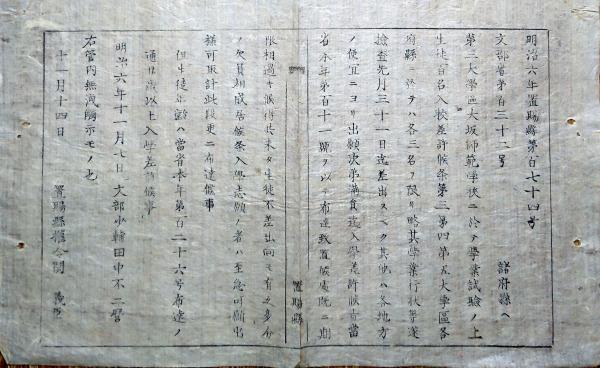 明治六年置賜縣第百七十四号
文部省第百三十二号
諸府縣ヘ
第三大學區大坂師範学校ニ於テ學業試驗ノ上
生徒百名入校差許候条第三第四第五大學區各
府縣ニ於テハ各三名ヲ限リ略其學業行状等遂
撿査先月三十一日迄差出スヘク其他ハ各地方
ノ便宜ニヨリ出願次第満員迄入學差許候旨當
省本年第百十一號ヲ以テ布達致置候處既ニ期
置賜縣
限相過キ候得共未タ生徒不差出向モ有之多分
ノ欠員相成居候条入學志願ノ者ハ至急可願出
様可取計此段更ニ布達候事
但生徒年齢ハ當省本年第百二十六号布達ノ
通廿歳以上入學差許候事
明治六年十一月七日
文部少輔田中不二麿
右管内無洩觸示モノ也
十一月十四日
置賜縣權令関